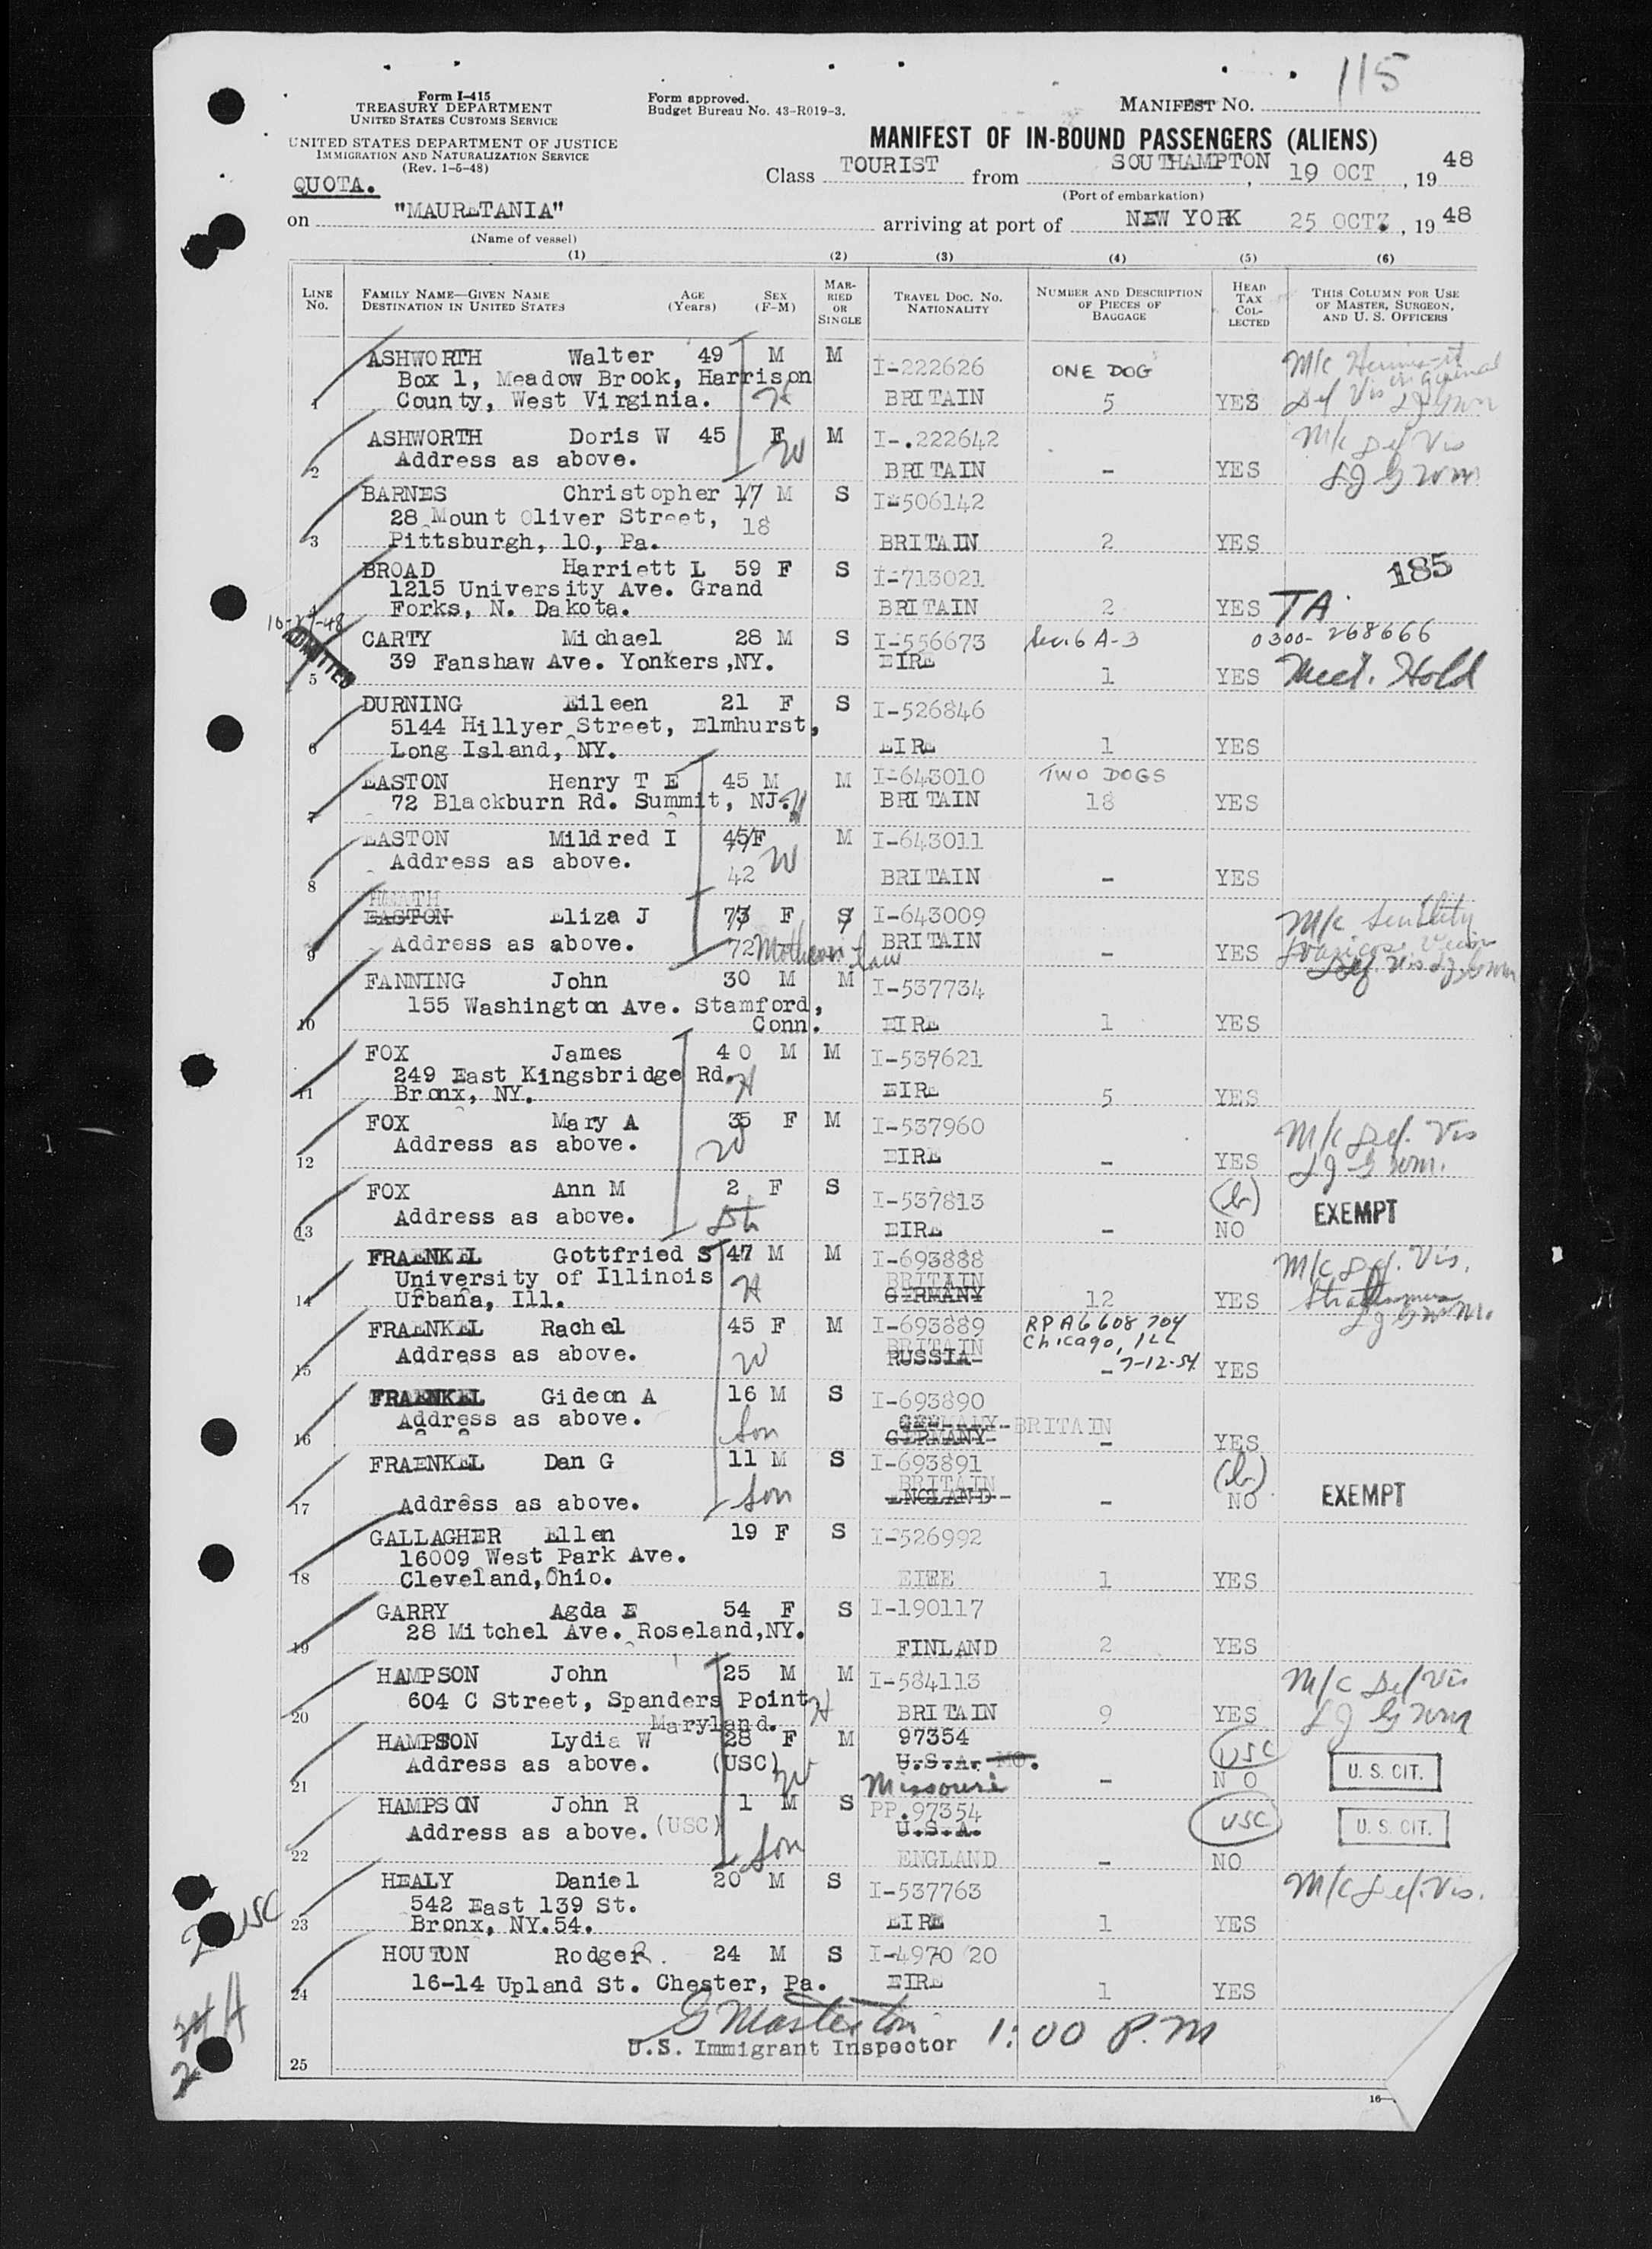 115
Form I-415
TREASURY DEPARTMENT
UNITED STATES CUSTOMS SERVICE
UNITED STATES DEPARTMENT OF JUSTICE
IMMIGRATION AND NATURALIZATION SERVICE
(Rev. 1-5-48)
Form approved.
Budget Bureau No. 43-R019-3.
MANIFEST NO.
MANIFEST OF IN-BOUND PASSENGERS (ALIENS)
QUOTA.
Class TOURIST from SOUTHAMPTON, 19 OCT, 19 48
(Port of embarkation)
on "MAURETANIA" arriving at port of NEW YORK 25 OCT., 19 48
(Name of vessel)
(1) (2) (3) (4) (5) (6)
LINE No. FAMILY NAME—GIVEN NAME DESTINATION IN UNITED STATES AGE (Years) SEX (F-M) MARRIED OR SINGLE TRAVEL DOC. NO. NATIONALITY NUMBER AND DESCRIPTION OF PIECES OF BAGGAGE HEAD TAX COLLECTED THIS COLUMN FOR USE OF MASTER, SURGEON, AND U. S. OFFICERS
ASHWORTH Walter 49 M M I-222626 ONE DOG M/c
Box 1, Meadow Brook, Harrison
1 County, West Virginia. H BRITAIN 5 YES Def Vis
ASHWORTH Doris W 45 F M I-.222642 M/c Def Vis
2 Address as above. W BRITAIN - YES
BARNES Christopher 17 M S I-506142
28 Mount Oliver Street, 18
3 Pittsburgh, 10, Pa. BRITAIN 2 YES
BROAD Harriett L 59 F S I-713021 185
1215 University Ave. Grand
Forks, N. Dakota. BRITAIN 2 YES TA.
ADMITTED
CARTY Michael 28 M S I-556673 Sec. 6 A-3 0300-268666
5 39 Fanshaw Ave. Yonkers,NY. EIRE 1 YES Med. Hold
DURNING Eileen 21 F S I-526846
5144 Hillyer Street, Elmhurst,
6 Long Island, NY. EIRE 1 YES
EASTON Henry T E 45 M M I-643010 TWO DOGS
7 72 Blackburn Rd. Summit, NJ. H BRITAIN 18 YES
EASTON Mildred I 45 F M I-643011
8 Address as above. 42 W BRITAIN - YES
HEATH
EASTON Eliza J 73 F S I-643009 M/c Senility
9 Address as above. 72 Mother in Law BRITAIN - YES Def. Vis
FANNING John 30 M M I-537734
155 Washington Ave. Stamford,
10 Conn. EIRE 1 YES
FOX James 40 M M I-537621
249 East Kingsbridge Rd. H
11 Bronx, NY. EIRE 5 YES
FOX Mary A 35 F M I-537960 M/c Def. Vis
12 Address as above. W EIRE - YES
FOX Ann M 2 F S I-537813 (b) EXEMPT
13 Address as above. EIRE - NO
FRAENKEL Gottfried S 47 M M I-693888 M/c Def. Vis.
University of Illinois H BRITAIN
14 Urbana, Ill. GERMANY 12 YES
FRAENKEL Rachel 45 F M I-693889 RP A6608704
Address as above. W BRITAIN Chicago, ILL
15 RUSSIA - 7-12-54 YES
FRAENKEL Gideon A 16 M S I-693890
Address as above. Son GERMANY-BRITAIN
16 GERMANY - YES
FRAENKEL Dan G 11 M S I-693891 (b)
BRITAIN
17 Address as above. Son ENGLAND - NO EXEMPT
GALLAGHER Ellen 19 F S I-526992
16009 West Park Ave.
18 Cleveland,Ohio. EIEE 1 YES
GARRY Agda E 54 F S I-190117
28 Mitchel Ave. Roseland,NY.
19 FINLAND 2 YES
HAMPSON John 25 M M I-584113 M/c Def Vis
604 C Street, Spanders Point H
20 Maryland. BRITAIN 9 YES
HAMPSON Lydia W 28 F M 97354 USC
Address as above. (USC) W U.S.A. MO. U. S. CIT.
21 Missouri - NO
HAMPSON John R 1 M S PP.97354 USC
Address as above. (USC) U.S.A. U. S. CIT.
22 Son ENGLAND - NO
HEALY Daniel 20 M S I-537763 M/c Def. Vis.
542 East 139 St.
23 Bronx, NY.54. EIRE 1 YES
2 USC
HOUTON Rodger. 24 M S I-4970 20
24 16-14 Upland St. Chester, Pa. EIRE 1 YES
G Masterton 1:00 P.M
U.S. Immigrant Inspector
25
16—